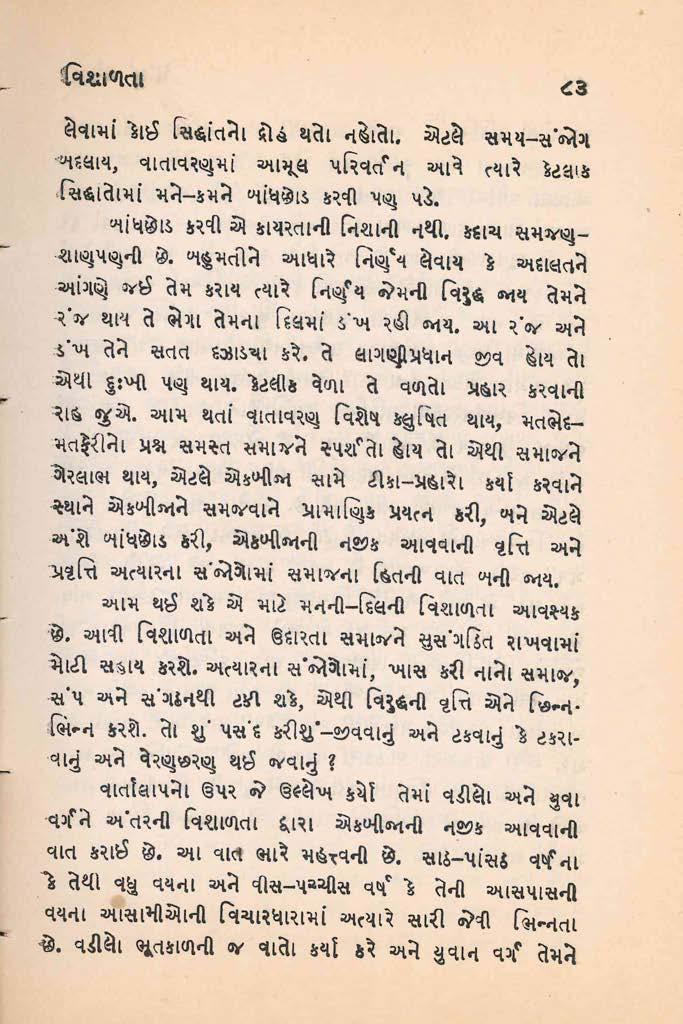 વિશાળતા
૮૩
લેવામાં કોઈ સિદ્ધાંતનો દ્રોહ થતો નહોતો. એટલે સમય–સંજોગ
બદલાય, વાતાવરણમાં આમૂલ પરિવર્તન આવે ત્યારે કેટલાક
સિદ્ધાતોમાં મને–કમને બાંધછોડ કરવી પણ પડે.
બાંધછોડ કરવી એ કાયરતાની નિશાની નથી. કદાચ સમજણ–
શાણપણની છે. બહુમતીને આધારે નિર્ણય લેવાય કે અદાલતને
આંગણે જઈ તેમ કરાય ત્યારે નિર્ણય જેમની વિરુદ્ધ જાય તેમને
રંજ થાય તે ભેગા તેમના દિલમાં ડંખ રહી જાય. આ રંજ અને
ડંખ તેને સતત દઝાડ્યા કરે. તે લાગણીપ્રધાન જીવ હોય તો
એથી દુઃખી પણ થાય. કેટલીક વેળા તે વળતો પ્રહાર કરવાની
રાહ જુએ. આમ થતાં વાતાવરણ વિશેષ કલુષિત થાય, મતભેદ–
મતફેરીનો પ્રશ્ન સમસ્ત સમાજને સ્પર્શતો હોય તો એથી સમાજને
ગેરલાભ થાય, એટલે એકબીજા સામે ટીકા–પ્રહારો કર્યા કરવાને
સ્થાને એકબીજાને સમજવાને પ્રામાણિક પ્રયત્ન કરી, બને એટલે
અંશે બાંધછોડ કરી, એકબીજાની નજીક આવવાની વૃત્તિ અને
પ્રવૃત્તિ અત્યારના સંજોગોમાં સમાજના હિતની વાત બની જાય.
આમ થઈ શકે એ માટે મનની–દિલની વિશાળતા આવશ્યક
છે. આવી વિશાળતા અને ઉદારતા સમાજને સુસંગઠિત રાખવામાં
મોટી સહાય કરશે. અત્યારના સંજોગોમાં, ખાસ કરી નાનો સમાજ,
સંપ અને સંગઠનથી ટકી શકે, એથી વિરુદ્ધની વૃત્તિ એને છિન્ન-
ભિન્ન કરશે. તો શું પસંદ કરીશું–જીવવાનું અને ટકવાનું કે ટકરા-
વાનું અને વેરણછરણ થઈ જવાનું ?
વાર્તાલાપનો ઉપર જે ઉલ્લેખ કર્યો તેમાં વડીલો અને યુવા
વર્ગને અંતરની વિશાળતા દ્વારા એકબીજાની નજીક આવવાની
વાત કરાઈ છે. આ વાત ભારે મહત્ત્વની છે. સાઠ–પાંસઠ વર્ષના
કે તેથી વધુ વયના અને વીસ–પચ્ચીસ વર્ષ કે તેની આસપાસની
વયના આસામીઓની વિચારધારામાં અત્યારે સારી જેવી ભિન્નતા
છે. વડીલો ભૂતકાળની જ વાતો કર્યા કરે અને યુવાન વર્ગ તેમને